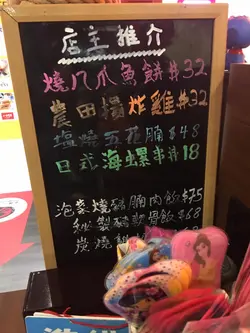 店主推介
燒八爪魚餅 $32
農田揚炸雞 $32
塩燒五花腩 $48
日式海螺串 $18
泡菜燒豬腩肉飯 $75
秘製豬軟骨飯 $68
炭燒